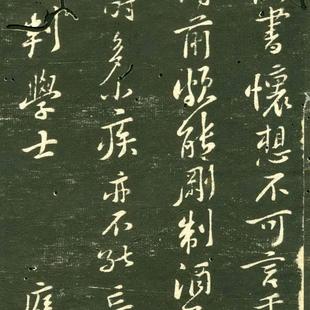 書懷想不可言
前頗能剛制酒
多小疾亦不能忘
判學士